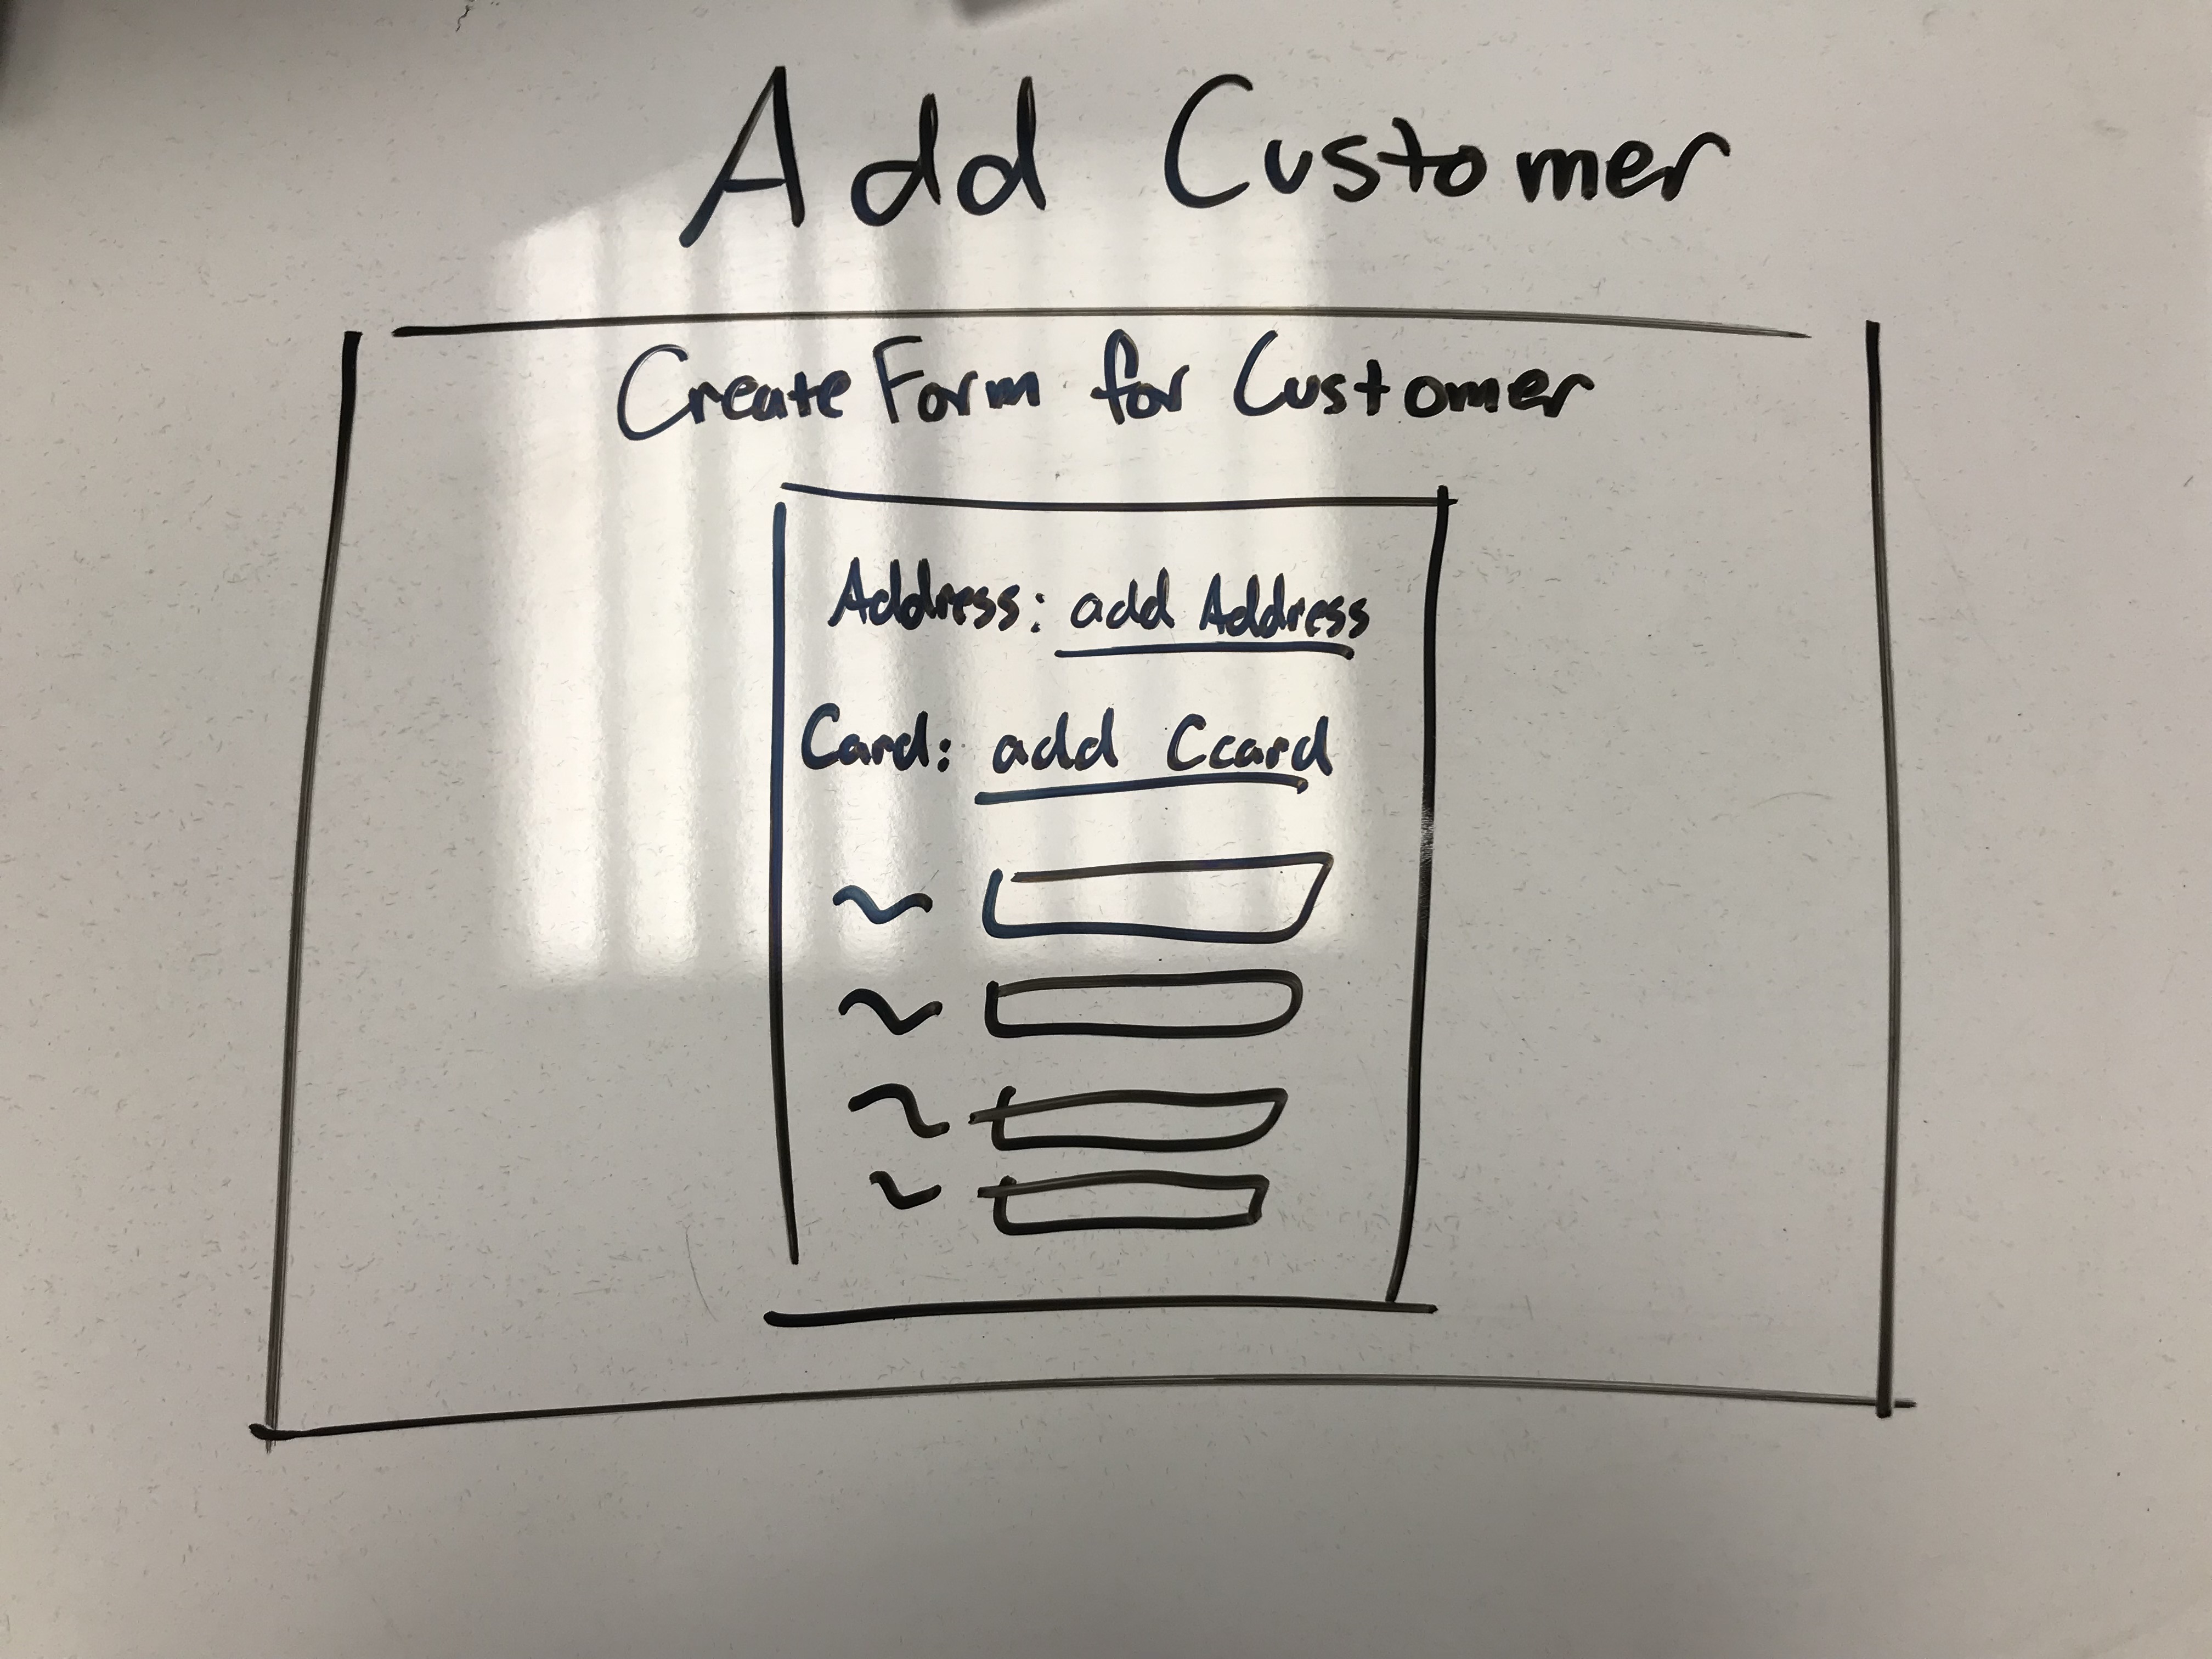 Add Customer
Create Form for Customer
Address: add Address
Card: add Ccard